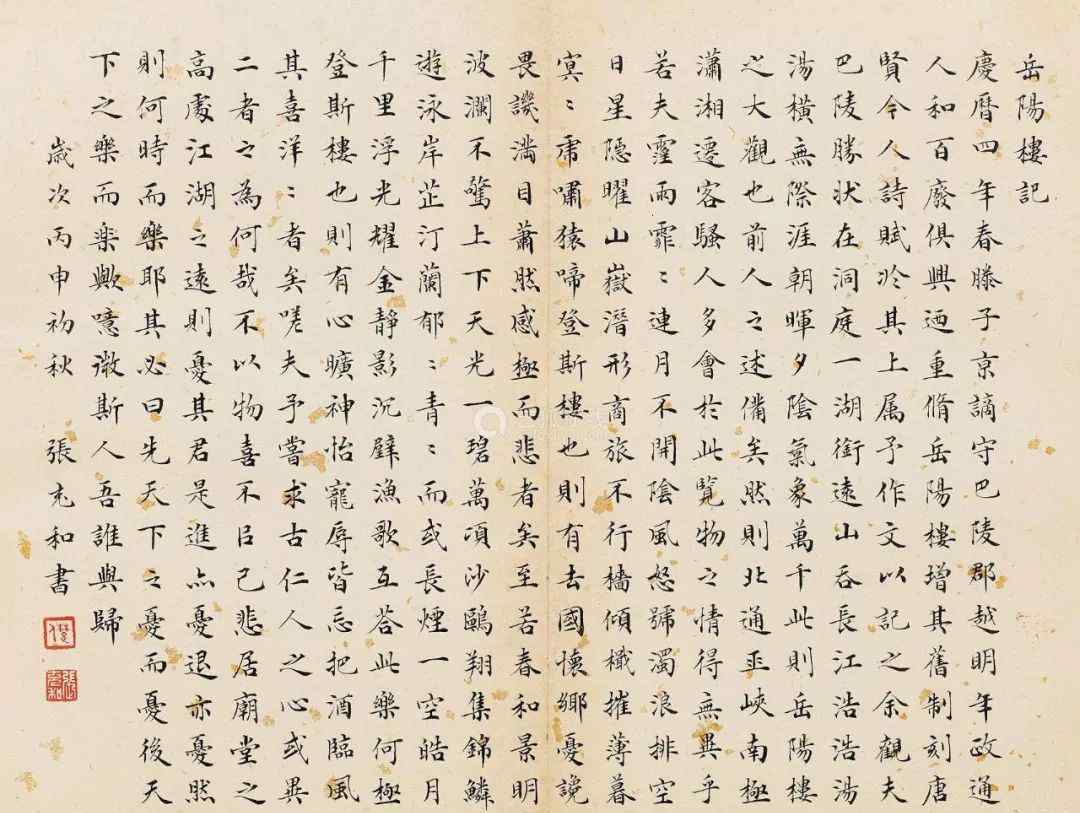 岳陽樓記
慶曆四年春滕子京謫守巴陵郡越明年政通
人和百廢俱興迺重脩岳陽樓增其舊制刻唐
賢今人詩賦於其上属予作文以記之余觀夫
巴陵勝狀在洞庭一湖銜遠山吞長江浩浩湯
湯橫無際涯朝暉夕陰氣象萬千此則岳陽樓
之大觀也前人之述備矣然則北通巫峽南極
瀟湘遷客騷人多會於此覽物之情得無異乎
若夫霪雨霏〻連月不開陰風怒號濁浪排空
日星隱曜山嶽潛形商旅不行檣傾檝摧薄暮
冥〻虎嘯猿啼登斯樓也則有去國懷鄉憂讒
畏譏滿目蕭然感極而悲者矣至若春和景明
波瀾不驚上下天光一碧萬頃沙鷗翔集錦鱗
遊泳岸芷汀蘭郁〻青〻而或長煙一空皓月
千里浮光耀金靜影沉璧漁歌互荅此樂何極
登斯樓也則有心曠神怡寵辱皆忘把酒臨風
其喜洋〻者矣嗟夫予嘗求古仁人之心或異
二者之為何哉不以物喜不㠯己悲居廟堂之
高處江湖之遠則憂其君是進亦憂退亦憂然
則何時而樂耶其必曰先天下之憂而憂後天
下之樂而樂歟噫微斯人吾誰與歸
歲次丙申初秋 張充和書
張充和